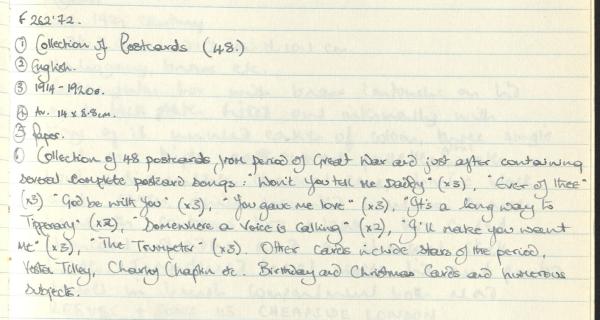 F262'72.
① Collection of Postcards (48.)
② English.
③ 1914-1920s.
④ Av. 14 x 8.8cm.
⑤ Paper.
⑥ Collection of 48 postcards, from period of Great War and just after containing
several complete postcard songs: "Won't You tell Me Daddy" (x3), "Ever of thee"
(x3) "God be with You" (x3), "You gave me love" (x3), "It's a long way to
Tipperary" (x2), "Somewhere a Voice is Calling" (x2), "I'll make you want
Me" (x3), "The Trumpeter" (x3). Other cards include stars of the period,
Vesta Tilley, Charley Chaplin etc. Birthday and Christmas Cards and numerous
subjects.